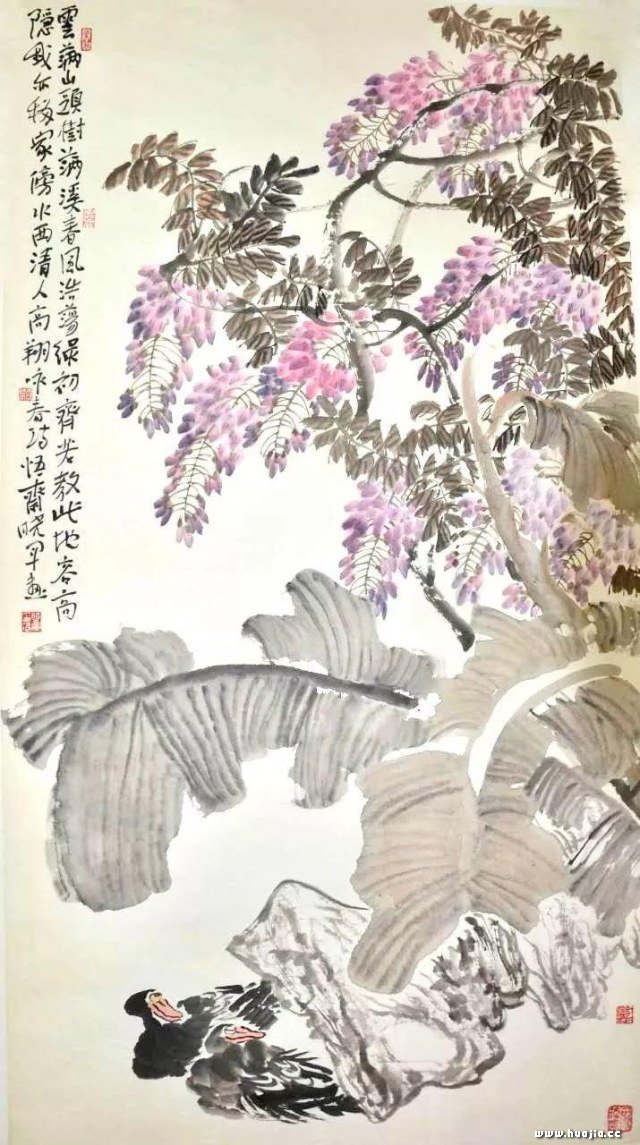 雲滿山頭樹滿溪春風浩蕩綠初齊若教此地容高
隱我亦移家傍水西清人高翔咏春诗悟齋晓军画
www.huajia.cc